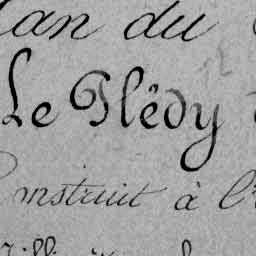 lan du
Le Plêdy
Construit à l'